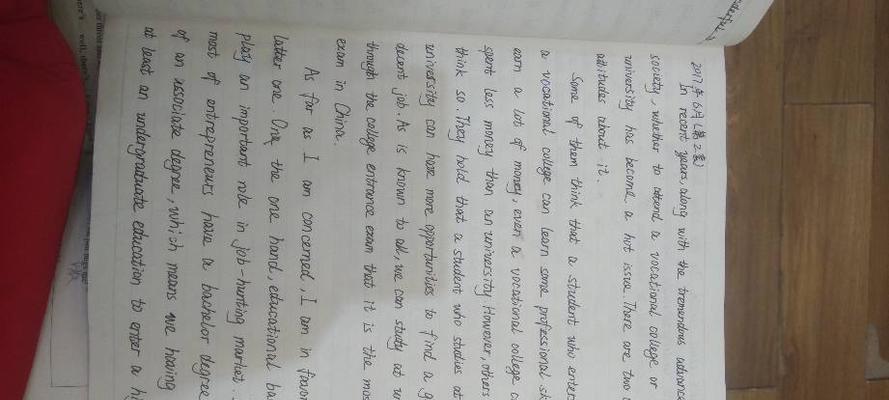 2017年6月(第2套)
In recent years, along with the tremendous advance
society, whether to attend a vocational college or
university has become a hot issue. There are two
attitudes about it.
Some of them think that a student who enters
a vocational college can learn some professional sk
earn a lot of money, even a vocational college c
spent less money than an university. However, others
think so. They hold that a student who studies at
university can have more opportunities to find a g
decent job. As is known to all, we can study at un
through the college entrance exam that it is the mos
exam in China.
As far as I am concerned, I am in favor
latter one. One the one hand, educational ba
play an important role in job-hunting market.
most of entrepreneurs have a bachelor degree
of an associate degree, which means we having
at least an undergraduate education to enter a hi